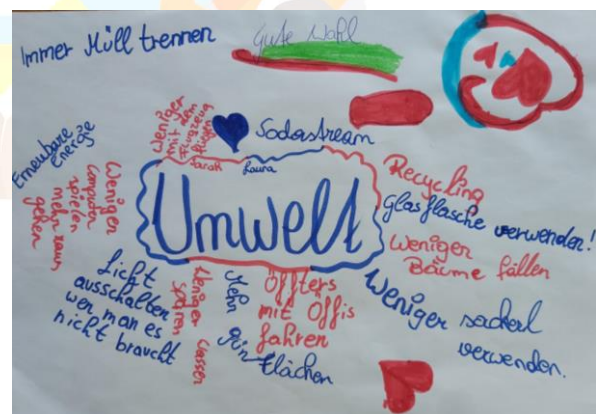 Immer Müll trennen
Gute Wahl
Weniger
mit dem
Flugzeug
fliegen
Sodastream
Sarah
Laura
Umwelt
Erneubare
Energie
Weniger
Computer
spielen
mehr raus
gehen
Recycling
Glasflasche verwenden!
Weniger
Bäume fällen
Weniger sackerl
verwenden.
Licht
ausschalten
wen man es
nicht braucht
Weniger Wasser
sparen
Mehr
grün flächen
Öffters
mit Öffis
fahren